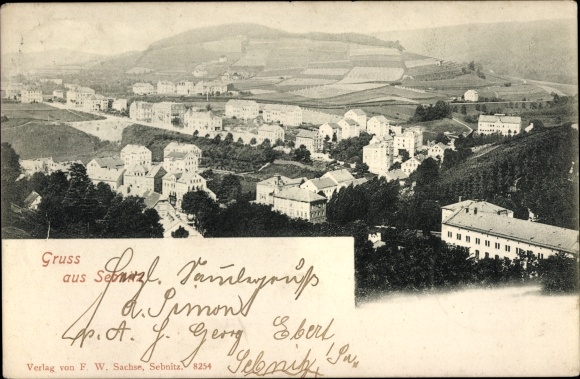 Gruss
aus Sebnitz
Herzl. Sammlergruß
A. Simon
p. A. H. Georg Ebert
Sebnitz i/Sa
Verlag von F. W. Sachse, Sebnitz. 8254